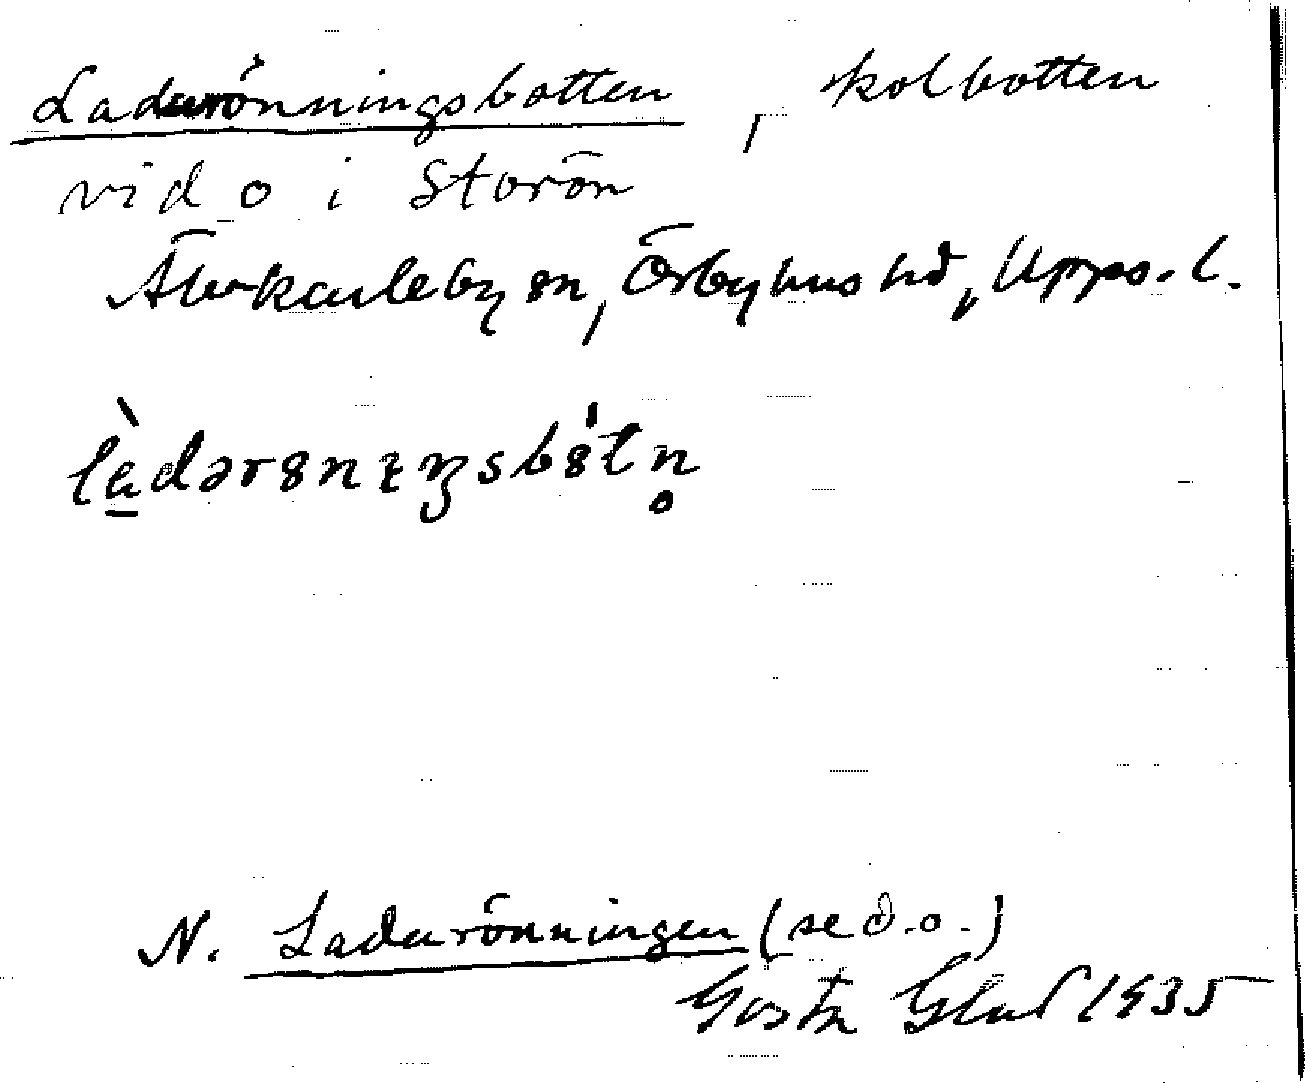 Ladurönningsbotten, kolbotten
vid o i Storön
Älvkarleby sn, Örbyhus hd, Upps. l.
N. Ladurönningen (se d.o.)
Gösta Glad 1935